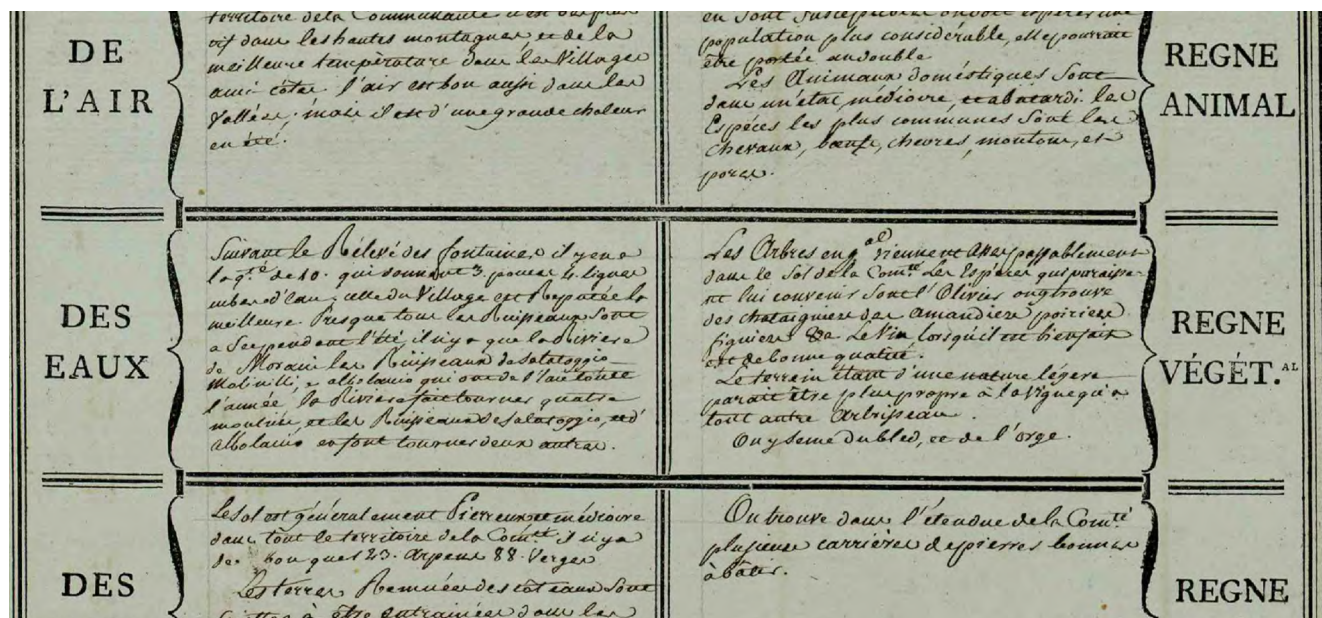 DE
L'AIR
territoire de la Communauté
vif dans les hautes montagnes et de la
meilleure température dans les Villages
a mi côtes. l'air est bon aussi dans les
Vallées; mais il est d'une grande chaleur
en été.
en sont susceptibles on doit espérer une
population plus considérable, elle pourrait
être portée au double
Les Animaux doméstiques Sont
dans un état médiocre, et abatardi. les
Espéces les plus communes Sont les
chevaux, bœufs, chevres, moutons, et
porcs.
REGNE
ANIMAL
DES
EAUX
Suivant le Rélévé des fontaines il y en a
la q.té de 10. qui donnent 3. pouces 4. lignes
d'eau; celle du Village est Reputée la
meilleure. Presque tous les Ruisseaux Sont
a Sec pendant l'été, il n'y a que la Riviere
de Morani les Ruisseaux de Salatoggio
Molinilli, e albolacio qui ont de l'Eau toute
l'année, la Riviere fait tourner quatre
moulins, et les Ruisseaux de Salatoggio, et d'
albolacio en font tourner deux autres.
Les Arbres en g.al viennent assez passablement
dans le Sol de la Com.té Les Espéces qui paraisse-
nt lui convenir Sont l'Olivier on y trouve
des chataigniers des amandiers poiriers
figuiers &a Le Vin lorsqu'il est bien fait
est de bonne qualité.
Le terrein étant d'une nature légere
parait être plus propre à la Vigne qu'a
tout autre Arbrisseau.
On y Seme du bled, et de l'orge.
REGNE
VÉGÉT.AL
DES
Le Sol est généralement Pierreux et médiocre
dans tout le territoire de la Com.té il n'y a
de bon que 123. Arpens 88. Verges
Les terres Remuées des côteaux Sont
à être entrainées dans les
On trouve dans l'étendue de la Com.té
plusieurs carrières de pierres bonnes
à bâtir.
REGNE